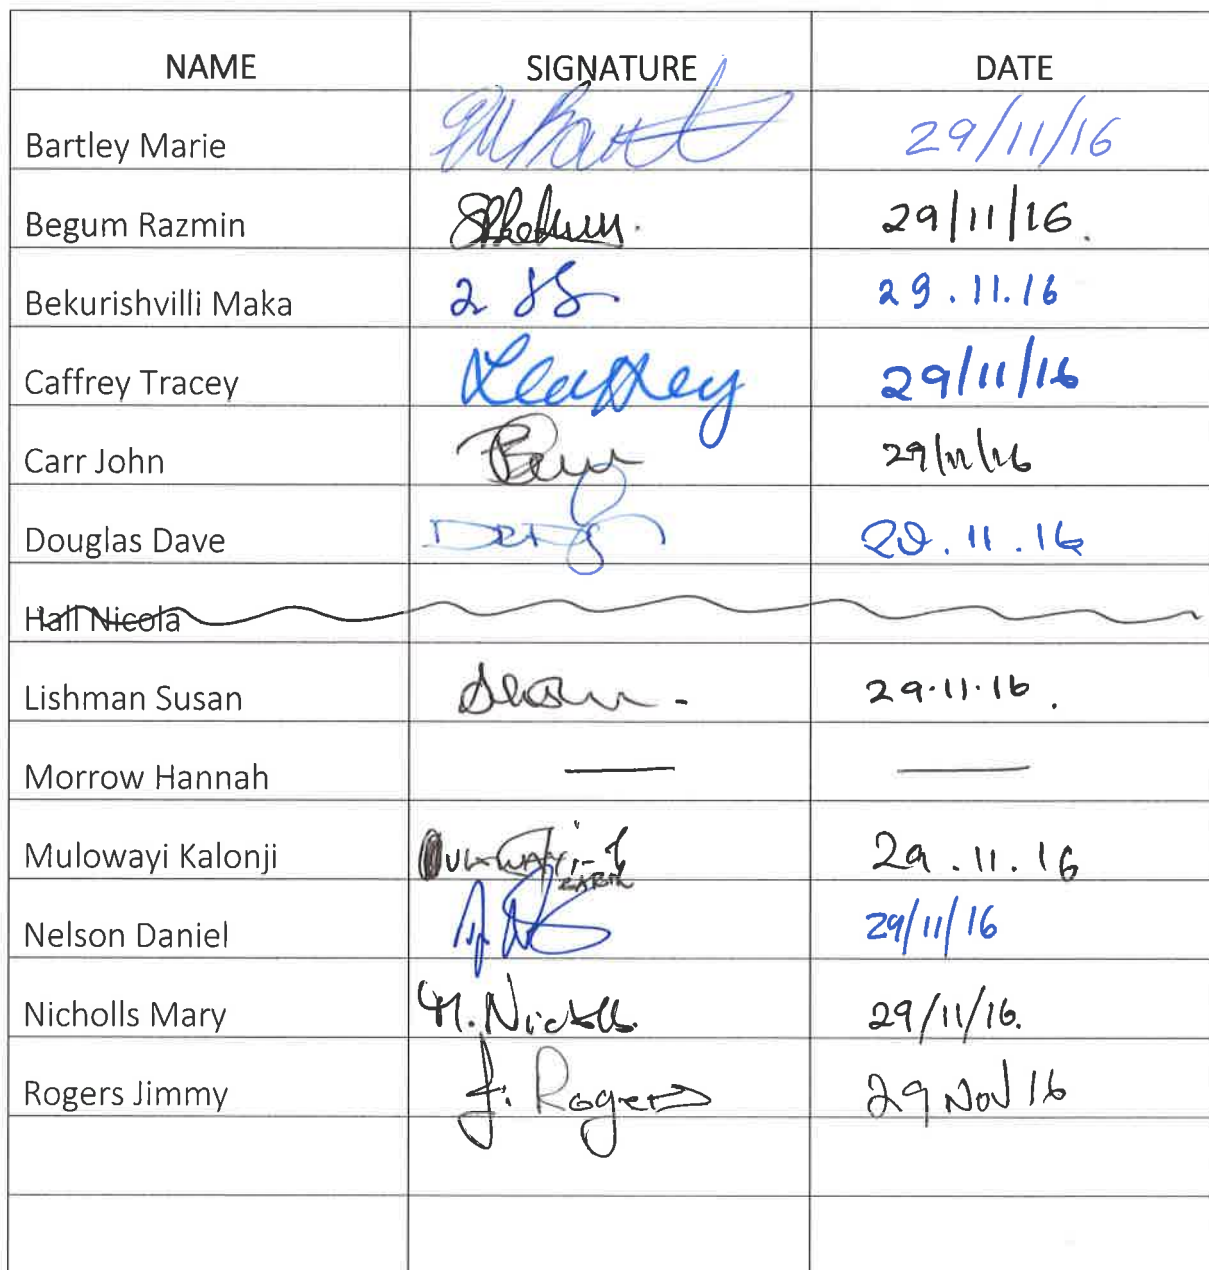 NAME SIGNATURE DATE
Bartley Marie 29/11/16
Begum Razmin 29/11/16.
Bekurishvilli Maka 29.11.16
Caffrey Tracey 29/11/16
Carr John 29/11/16
Douglas Dave 29.11.16
Hall Nicola
Lishman Susan 29.11.16.
Morrow Hannah — —
Mulowayi Kalonji 29.11.16
Nelson Daniel 29/11/16
Nicholls Mary M. Nicholls 29/11/16.
Rogers Jimmy J. Rogers 29 Nov 16